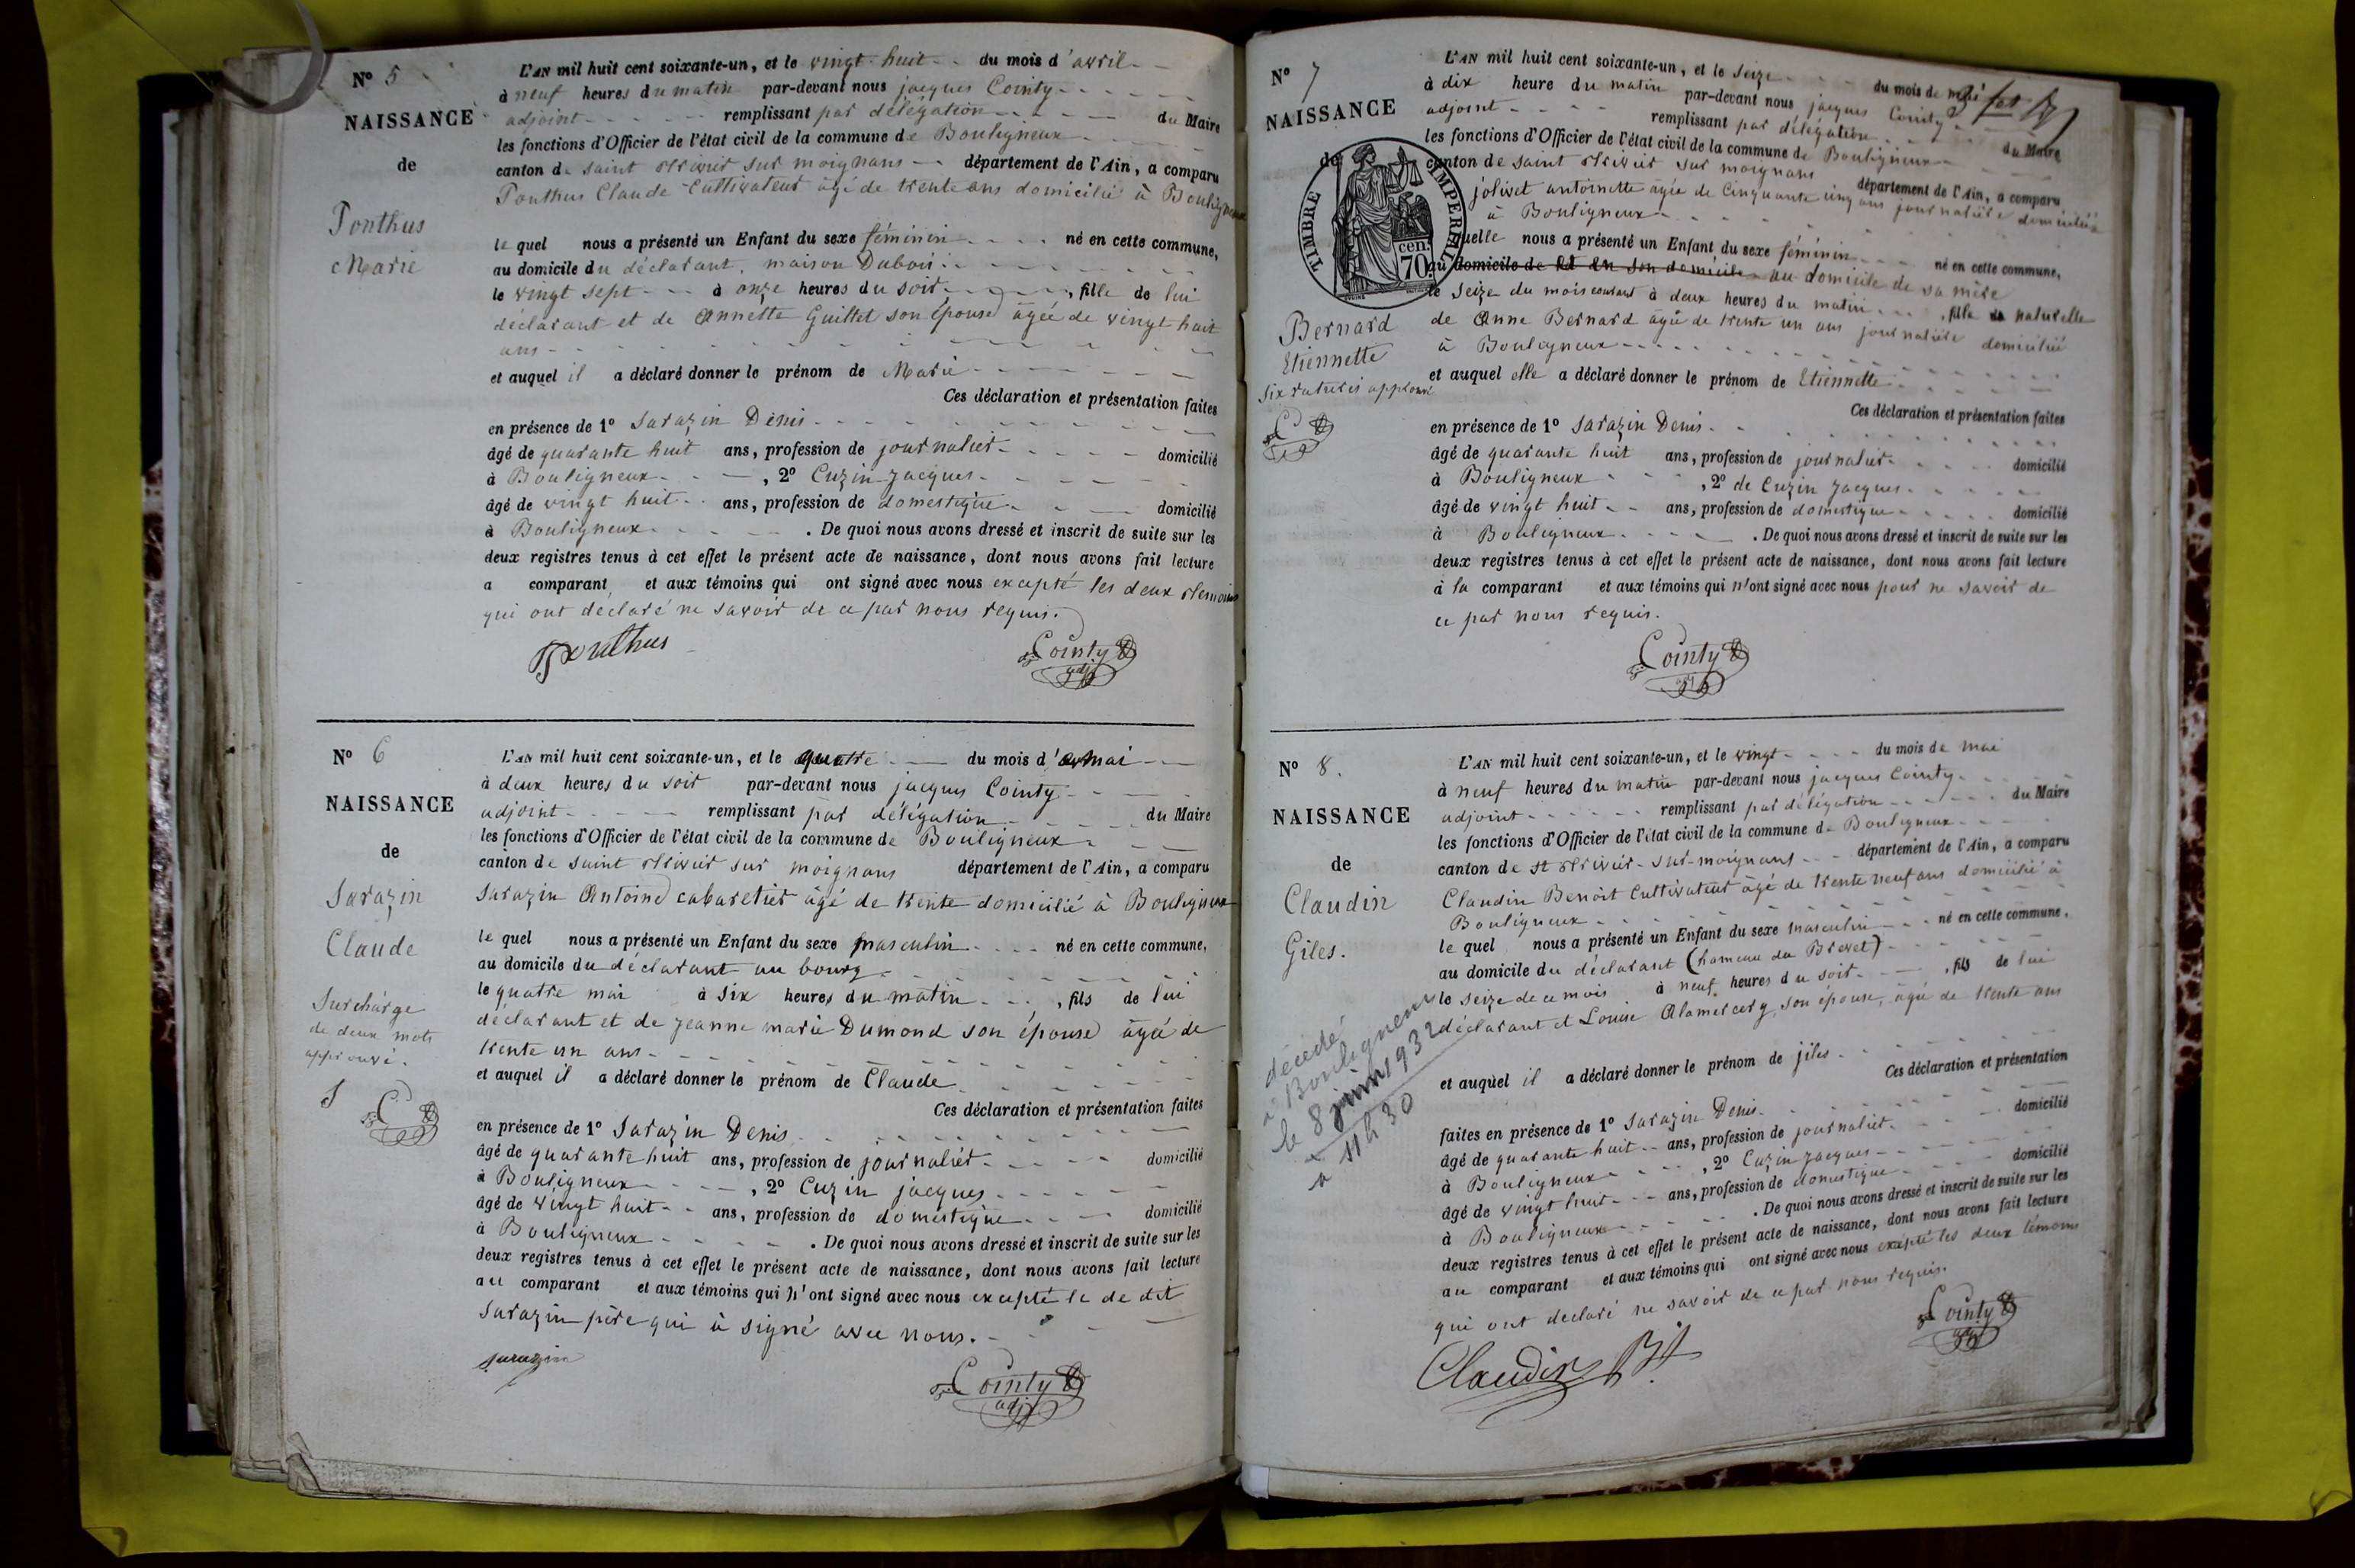 N° 5
NAISSANCE
de
Ponthus
Marie
L'AN mil huit cent soixante-un, et le vingt huit du mois d'avril
à neuf heures du matin par-devant nous jacques Cointy
adjoint remplissant par délégation du Maire
les fonctions d'Officier de l'état civil de la commune de Bouligneux
canton de saint trivier sur moignans département de l'Ain, a comparu
Ponthus Claude Cultivateur âgé de trente ans domicilié à Bouligneux
le quel nous a présenté un Enfant du sexe féminin né en cette commune,
au domicile du déclarant, maison Dubois
le vingt sept à onze heures du soir, fille de lui
déclarant et de Annette Guillet son épouse âgée de vingt huit
ans
et auquel il a déclaré donner le prénom de Marie
Ces déclaration et présentation faites
en présence de 1° Sarazin Denis
âgé de quarante huit ans, profession de journalier domicilié
à Bouligneux, 2° Cuzin jacques
âgé de vingt huit ans, profession de domestique domicilié
à Bouligneux. De quoi nous avons dressé et inscrit de suite sur les
deux registres tenus à cet effet le présent acte de naissance, dont nous avons fait lecture
a comparant et aux témoins qui ont signé avec nous excepté les deux témoins
qui ont déclaré ne savoir de ce par nous requis.
Ponthus Cointy adj
N° 6
NAISSANCE
de
Sarazin
Claude
Surcharge
de deux mots
approuvé.
S C
L'AN mil huit cent soixante-un, et le quatre du mois d' mai
à deux heures du soir par-devant nous jacques Cointy
adjoint remplissant par délégation du Maire
les fonctions d'Officier de l'état civil de la commune de Bouligneux
canton de saint trivier sur moignans département de l'Ain, a comparu
Sarazin Antoine cabaretier âgé de trente domicilié à Bouligneux
le quel nous a présenté un Enfant du sexe masculin né en cette commune,
au domicile du déclarant au bourg
le quatre mai à six heures du matin, fils de lui
déclarant et de jeanne marie Dumond son épouse âgée de
trente un ans
et auquel il a déclaré donner le prénom de Claude
Ces déclaration et présentation faites
en présence de 1° Sarazin Denis
âgé de quarante huit ans, profession de journalier domicilié
à Bouligneux, 2° Cuzin jacques
âgé de vingt huit ans, profession de domestique domicilié
à Bouligneux. De quoi nous avons dressé et inscrit de suite sur les
deux registres tenus à cet effet le présent acte de naissance, dont nous avons fait lecture
au comparant et aux témoins qui n'ont signé avec nous excepté le de dit
Sarazin père qui à signé avec nous.
sarazin
Cointy adj
N° 7
NAISSANCE
de
TIMBRE IMPERIAL
70 cen.
Bernard
Etiennette
Six ratures approuvé
C
L'AN mil huit cent soixante-un, et le seize du mois de mai
à dix heure du matin par-devant nous jacques Cointy
adjoint remplissant par délégation du Maire
les fonctions d'Officier de l'état civil de la commune de Bouligneux
canton de saint trivier sur moignans département de l'Ain, a comparu
jolivet antoinette âgée de Cinquante cinq ans journalière domiciliée
à Bouligneux
quelle nous a présenté un Enfant du sexe féminin né en cette commune,
au domicile de et en son domicile au domicile de sa mère
le seize du mois courant à deux heures du matin, fille naturelle
de Anne Bernard âgée de trente un ans journalière domiciliée
à Bouligneux
et auquel elle a déclaré donner le prénom de Etiennette
Ces déclaration et présentation faites
en présence de 1° Sarazin Denis
âgé de quarante huit ans, profession de journalier domicilié
à Bouligneux, 2° de Cuzin jacques
âgé de vingt huit ans, profession de domestique domicilié
à Bouligneux. De quoi nous avons dressé et inscrit de suite sur les
deux registres tenus à cet effet le présent acte de naissance, dont nous avons fait lecture
à la comparant et aux témoins qui n'ont signé avec nous pour ne savoir de
ce par nous requis.
Cointy adj
N° 8.
NAISSANCE
de
Claudin
Giles.
décédé
à Bouligneux
le 8 juin 1932
à 11h30
L'AN mil huit cent soixante-un, et le vingt du mois de mai
à neuf heures du matin par-devant nous jacques Cointy
adjoint remplissant par délégation du Maire
les fonctions d'Officier de l'état civil de la commune de Bouligneux
canton de st trivier-sur-moignans département de l'Ain, a comparu
Claudin Benoit Cultivateur âgé de trente neuf ans domicilié à
Bouligneux
le quel nous a présenté un Enfant du sexe masculin né en cette commune,
au domicile du déclarant (hameau du Brevet)
le seize de ce mois à neuf heures du soir, fils de lui
déclarant et Louise Alamercery, son épouse, âgée de trente ans
et auquel il a déclaré donner le prénom de jiles
Ces déclaration et présentation
faites en présence de 1° Sarazin Denis
âgé de quarante huit ans, profession de journalier domicilié
à Bouligneux, 2° Cuzin jacques
âgé de vingt huit ans, profession de domestique domicilié
à Bouligneux. De quoi nous avons dressé et inscrit de suite sur les
deux registres tenus à cet effet le présent acte de naissance, dont nous avons fait lecture
au comparant et aux témoins qui ont signé avec nous excepté les deux témoins
qui ont declaré ne savoir de ce par nous requis.
Cointy adj
Claudin Bt